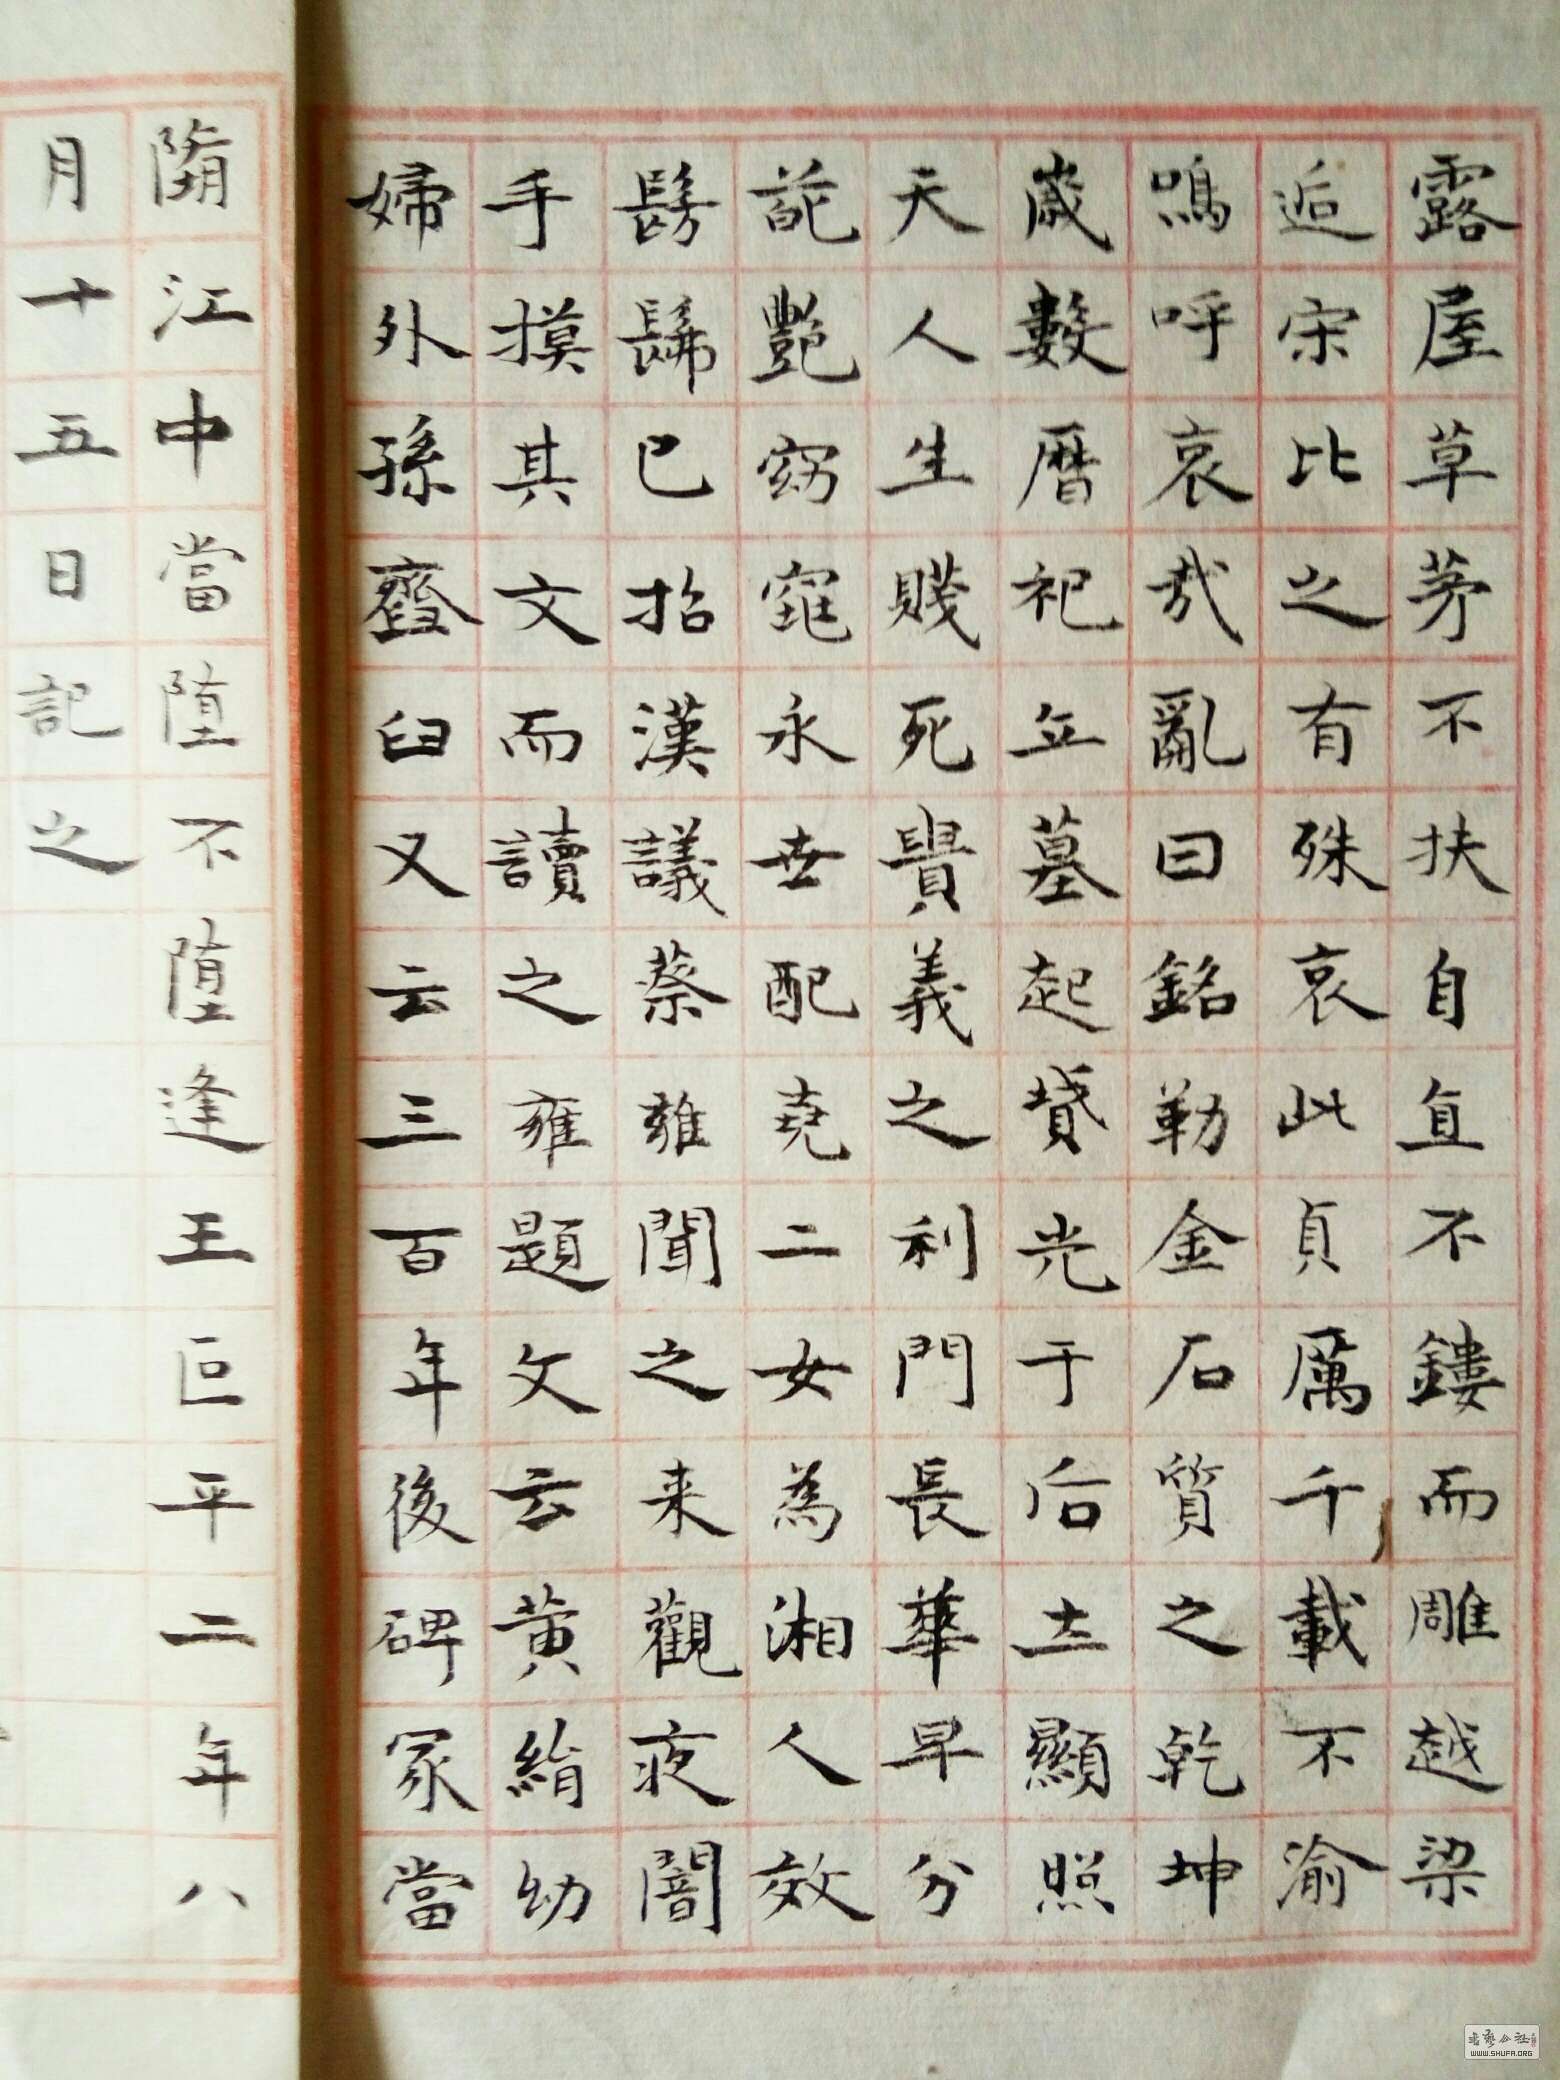 露屋草茅不扶自直不鏤而雕越梁
逅宋比之有殊哀此貞厲千載不渝
鳴呼哀哉亂曰銘勒金石質之乾坤
歲數曆祀立墓起墳光于后土顯照
天人生賤死貴義之利門長華早分
葩艷窈窕永世配堯二女為湘人效
髣髴已招漢議蔡雍聞之来觀夜闇
手摸其文而讀之雍題文云黃絹幼
婦外孫齏臼又云三百年後碑冢當
隋江中當墮不墮逢王叵平二年八
月十五日記之
書藝公社
WWW.SHUFA.ORG